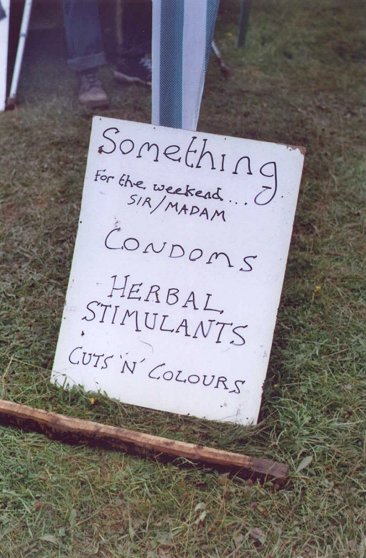 Something
For the weekend...
SIR/MADAM
CONDOMS
HERBAL
STIMULANTS
CUTS 'N' COLOURS